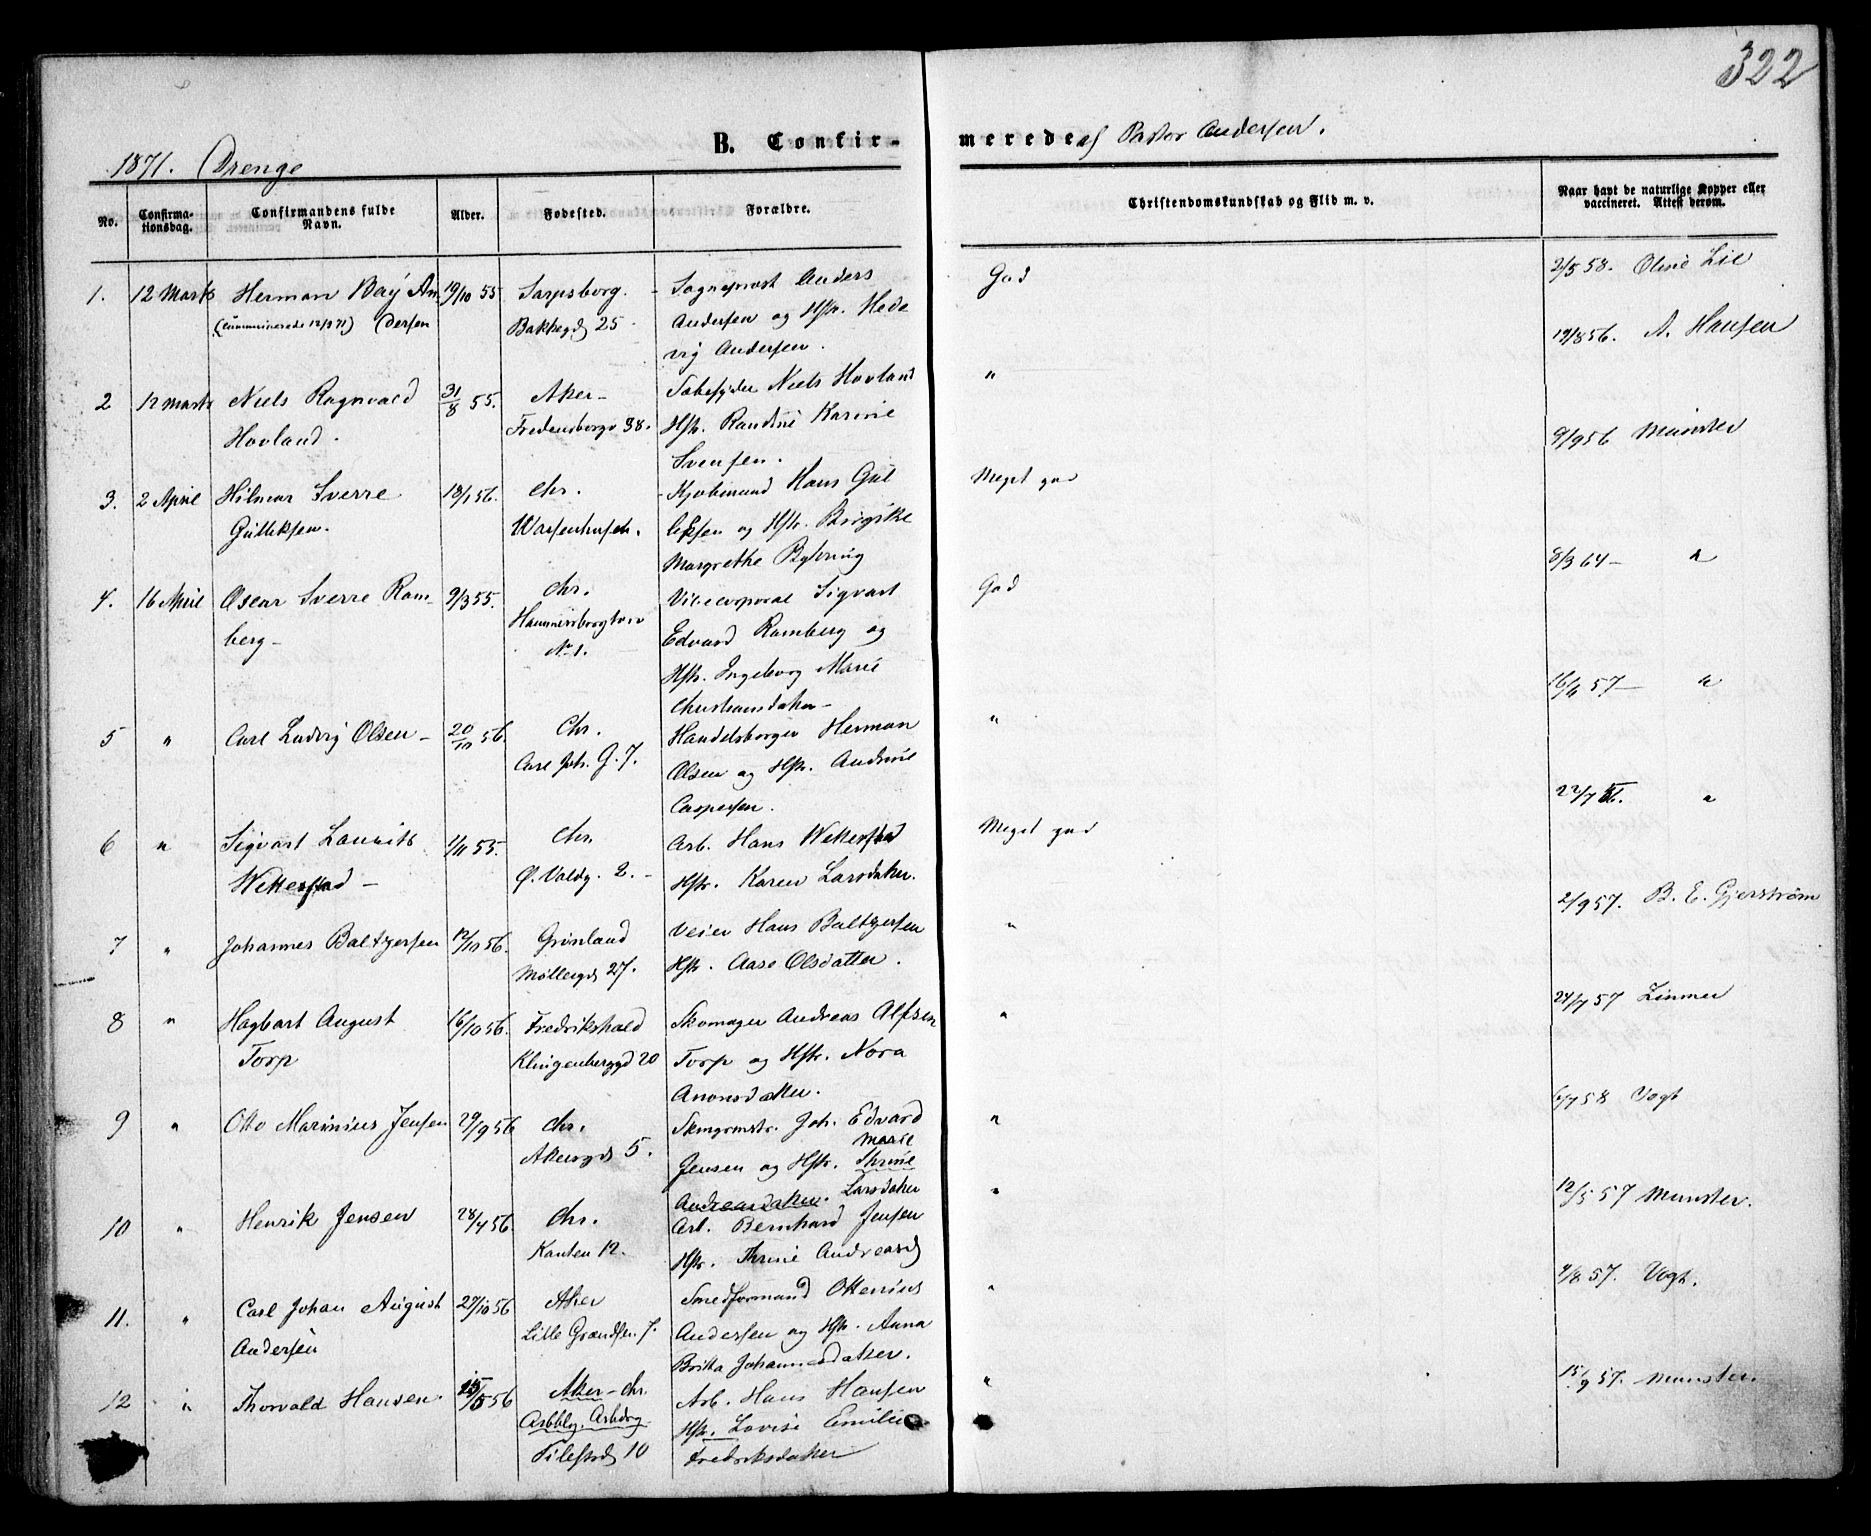 322
B. Confir-
merede af Pastor Andersen.
1871. Drenge
No.
Confirma-
tionsdag.
Confirmandens fulde
Navn.
Alder.
Fødested.
Forældre.
Christendomskundskab og Flid m. v.
Naar havt de naturlige Kopper eller
vaccineret. Attest derom.
1. 12 Marts Herman Bay An 19/10 55 Sarpsborg. Sogneprest Anders God 2/5 58. Oline Lie
(Communicerede 12/3 71) dersen Bakkegd 25 Andersen og Hstr. Hede
vig Andersen.
2 12 Marts Niels Ragnvald 31/8 55. Aker Sæbesyder Niels Hovland " 19/8 56. A. Hansen
Hovland. Fredensborgv 38. Hstr. Randine Karine
Svensen.
3. 2 April Hilmar Sverre 18/1 56. Chr. Kjøbmand Hans Gul Meget god 9/9 56 Münster
Gulliksen. Waisenhuset. liksen og Hstr. Birgitte
Margrethe
4. 16 April Oscar Sverre Ram- 9/3 55. Chr. Vicecorporal Sigvart God 8/3 64 "
berg Hammersborgtorv Edvard Ramberg og
No 1. Hstr. Ingeborg Marie
Christiansdatter
5 " Carl Ludvig Olsen 20/11 56. Chr. Handelsborger Herman " 16/11 57 "
Carl Joh. G. 7. Olsen og Hstr. Andrine
Caspersen.
6 " Sigvart Laurits 1/11 55. Chr. Arb. Hans Wetterstad Meget god 22/7 56. "
Wetterstad Ø. Voldg. 2. Hstr. Karen Larsdatter.
7 " Johannes Baltzersen 12/10 56. Grønland Veier Hans Baltzersen " 2/9 57. B. E. Gjerstrøm
Møllergd 27. Hstr. Aase Olsdatter.
8 " Hagbart August 16/10 56. Fredrikshald Skomager Andreas Alfsen " 24/7 57 Zimmer
Torp Klingenberggd 20 Torp og Hstr. Nora
Anonsdatter.
9 " Otto Marinius Jensen 29/9 56 Chr. Skomgrmstr. Joh. Edvard " 6/7 58 Vogt
Akersgd 5. Marie
Jensen og Hstr. Thrine
Andreasdatter. Larsdatter
10 " Henrik Jensen 28/4 56 Chr. Arb. Bernhard Jensen " 12/5 57 Münster.
Kanten 12. Hstr. Thrine Andreasd
11. " Carl Johan August 27/10 56 Aker Smedformand Ottenius " 9/8 57. Vogt.
Andersen Lille Grændsen 7. Andersen og Hstr. Anna
Britta Johannesdatter.
12 " Thorvald Hansen 5 56 Aker - Chr. Arb. Hans Hansen " 15/9 57. Münster.
Hstr. Lovise Emilie
Tilestred 10 Fredriksdatter